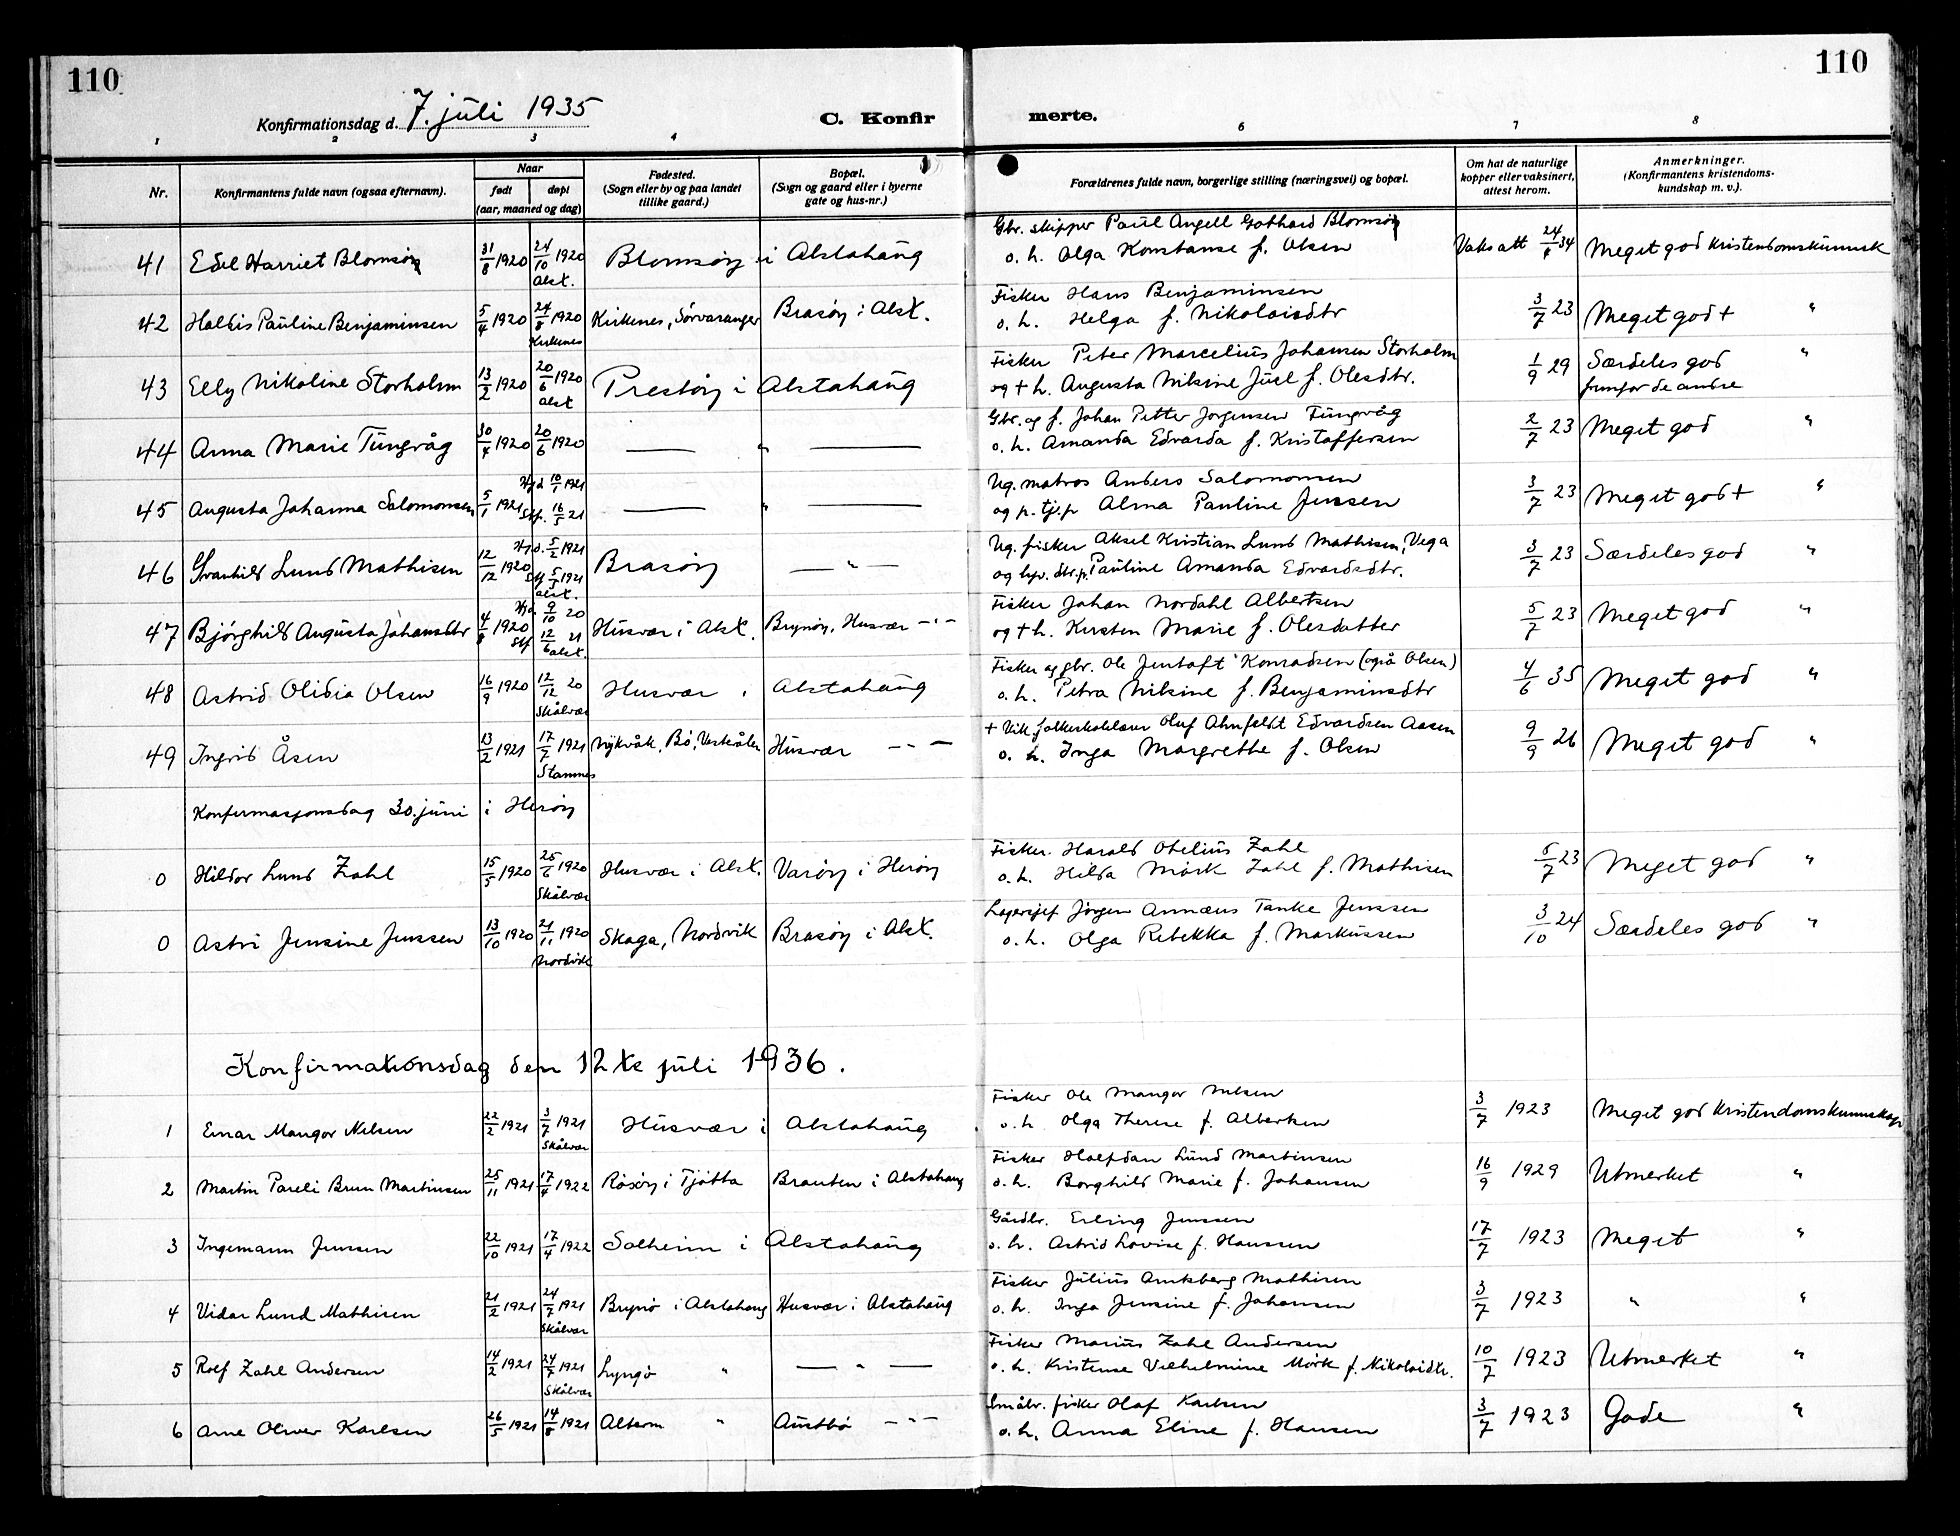 110
110
Konfirmationsdag d. 7. juli 1935
C. Konfirmerte.
1 2 3 4 6 7 8
Nr.
Konfirmantens fulde navn (ogsaa efternavn).
Naar
født
døpt
(aar, maaned og dag)
Fødested.
(Sogn eller by og paa landet
tillike gaard.)
Bopæl.
(Sogn og gaard eller i byerne
gate og hus-nr.)
Forældrenes fulde navn, borgerlige stilling (næringsvei) og bopæl.
Om hat de naturlige
kopper eller vaksinert,
attest herom.
Anmerkninger.
(Konfirmantens kristendoms-
kundskap m. v.).
Gbr. skipper Paul Angell Gotthard Blomsøy
41 Edel Harriet Blomsøy 31/8 1920 24/10 1920 Alst. Blomsøy i Alstahaug o. h. Olga Konstanse f. Olsen Vaks att 24/4 34 Meget god kristendomskunnsk
Fisker Hans Benjaminsen
42 Haldis Pauline Benjaminsen 5/4 1920 24/8 1920 Kirkenes Kirkenes, Sørvaranger Brasøy i Alst. o. h. Helga f. Nikolaisdtr 3/7 23 Meget god + "
Fisker Peter Marcelius Johansen Storholm
43 Elly Nikoline Storholm 13/2 1920 20/6 1920 Alst Prestøy i Alstahaug og + h. Augusta Nilsine Juel f. Olesdtr. 1/9 29 Særdeles god "
fremfor de andre
Gbr. og f. Johan Petter Jørgensen Tungvåg
44 Anna Marie Tungvåg 30/4 1920 20/6 1920 — " — o. h. Amanda Edvarda f. Kristoffersen 2/7 23 Meget god "
Ug. matros Anders Salomonsen
45 Augusta Johanna Salomonsen 5/1 1921 Hjd 10/1 1921 Stf. 16/5 21 — " — og p. tj.p Alma Pauline Jenssen 3/7 23 Meget god + "
Ug. fisker Aksel Kristian Lund Mathisen, Vega
46 Svanhild Lund Mathisen 12/12 1920 Hjd. 5/2 1921 Stf 5/5 1921 Alst. Brasøy — " — Pauline Amanda Edvardsdtr. 3/7 23 Særdeles god "
Fisker Johan Nordahl Albertsen
47 Bjørghild Augusta Johansdtr 4/8 1920 Hjd. 9/10 20 Stf 12/6 21 Alst. Husvær i Alst. Brynøy, Husvær — " — og + h. Kirsten Marie f. Olesdatter 5/7 23 Meget god "
Fisker og gbr. Ole Jentoft Konradsen (også Olsen)
48 Astrid Olidia Olsen 16/9 1920 12/12 20 Skålvær Husvær i Alstahaug o. h. Petra Nilsine f. Benjaminsdtr 4/6 35 Meget god "
+ Vik. folkeskolelærer Oluf Ahnfeldt Edvardsen Aasen
49 Ingrid Åsen 13/2 1921 17/7 1921 Stamnes Nykvåk, Bø, Vesterålen Husvær — " — o. h. Inga Margrethe f. Olsen 9/9 26 Meget god "
Konfirmasjonsdag 30. juni i Herøy
Fisker. Harald Otelius Zahl
0 Hildor Lund Zahl 15/5 1920 25/6 1920 Skålvær Husvær i Alst. Varøy i Herøy o. h. Hilda Mørk Zahl f. Mathisen 5/7 23 Meget god "
Lagersjef Jørgen Annæus Tanke Jenssen
0 Astri Jensine Jenssen 13/10 1920 21/11 1920 Nordvik Skaga, Nordvik Brasøy i Alst. o. h. Olga Rebekka f. Markussen 3/10 24 Særdeles god "
Konfirmationsdag den 12te juli 1936.
Fisker Ole Mangor Nilsen
1 Einar Mangor Nilsen 22/2 1921 3/7 1921 Skålvær Husvær i Alstahaug o. h. Olga Therese f. Albertsen 3/7 1923 Meget god kristendomskunnskap
Fisker Halfdan Lund Martinsen
2 Martin Pareli Brun Martinsen 25/11 1921 17/4 1922 Røsøy i Tjøtta Brauten i Alstahaug o. h. Borghild Marie f. Johansen 16/9 1929 Utmerket "
Gårdbr. Erling Jenssen
3 Ingemann Jenssen 22/10 1921 17/4 1922 Solheim i Alstahaug o. h. Astrid Lovise f. Hanssen 17/7 1923 Meget "
Fisker Julius Amtsberg Mathisen
4 Vidar Lund Mathisen 21/2 1921 24/7 1921 Skålvær Brynø i Alstahaug Husvær i Alstahaug o. h. Inga Jensine f. Johansen 3/7 1923 " "
Fisker Marius Zahl Andersen
5 Rolf Zahl Andersen 14/2 1921 24/7 1921 Skålvær Lyngø " — " — o. h. Kristense Vilhelmine Mørk f. Nikolaidtr. 10/7 1923 Utmerket "
Småbr. fisker Olaf Karlsen
6 Arne Oliver Karlsen 26/5 1921 14/8 1921 Altern " Austbø — " — o. h. Anna Eline f. Hansen 3/7 1923 Gode "